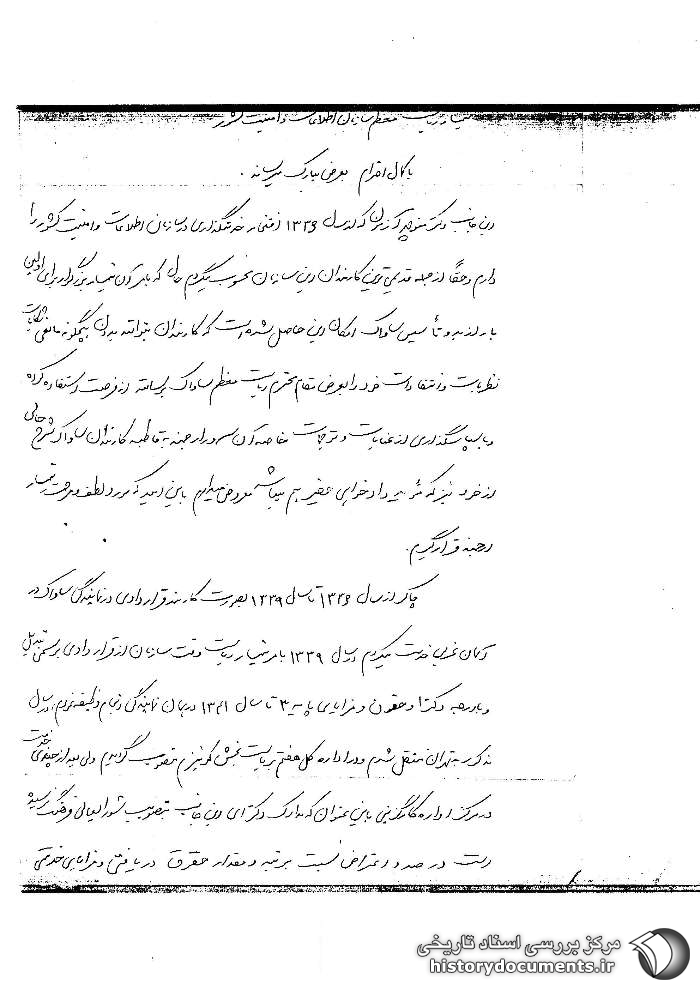 تیمسار ریاست معظم سازمان اطلاعات و امنیت کشور
با کمال احترام بعرض مبارک میرساند.
این جانب دکتر منوچهر که از سال ۱۳۳۶ افتخار خدمتگذاری در سازمان اطلاعات و امنیت کشور را
دارم و حقاً از جمله قدیمی ترین کارمندان این سازمان محسوب میگردم حال که با امر آن تیمسار بزرگوار برای اولین
بار از بدو تأسیس ساواک امکان این حاصل شده است که کارمندان بتوانند بدون هیچگونه مانعی شکایات
نظریات و انتقادات خود را بعرض مقام محترم ریاست معظم ساواک برسانند از فرصت استفاده کرده
و با سپاسگذاری از عنایات و توجهات خاصه آن سرور ارجمند به قاطبه کارمندان ساواک شرح حالی
از خود نیز که دادخواهی حقیر هم میباشد معروض میدارم باین امید که مورد لطف و مرحمت تیمسار
ارجمند قرار گیرم.
چاکر از سال ۱۳۳۶ تا سال ۱۳۳۹ بصورت کارمند قراردادی در نمایندگی ساواک در
آلمان غربی خدمت میکردم در سال ۱۳۳۹ بامر تیمسار ریاست وقت سازمان از قراردادی برسمی تبدیل
و با درجه دکترا و حقوق و مزایای پایه ۳ تا سال ۱۳۴۱ در همان نمایندگی انجام وظیفه نمودم، در سال
مذکور به تهران منتقل شدم و در اداره کل هفتم بریاست بخش کمونیزم منصوب گردیدم ولی بعد از چندی خدمت
در مرکز اداره کارگزینی باین عنوان که مدارک دکترای این جانب بتصویب شورایعالی فرهنگ نرسیده
است درصدد اعتراض نسبت برتبه و مقدار حقوق دریافتی و مزایای خدمتی
مرکز بررسی اسناد تاریخی
historydocuments.ir